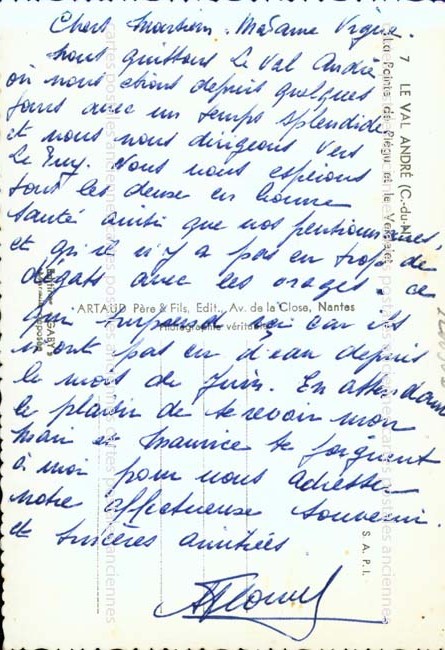 Chers Monsieur, Madame
nous quittons Le Val André
où nous étions depuis quelques
jours avec un temps splendide
et nous nous dirigeons vers
Le Puy. Nous vous espérons
tous les deux en bonne
santé ainsi que vos pensionnaires
et qu'il n'y a pas eu trop de
dégâts avec les orages. ce
qui ici car ils
n'ont pas eu d'eau depuis
le mois de Juin. En attendant
le plaisir de te revoir mon
mari et Maurice se joignent
à moi pour vous adresser
notre affectueux souvenir
et sincères amitiés
7 LE VAL ANDRÉ (C.-du-N.)
La Pointe de Plégu et le Verdelet
ARTAUD Père & Fils, Edit., Av. de la Close, Nantes
Photographie véritable
"GABY"
S. A. P. I.
cartes postales anciennes